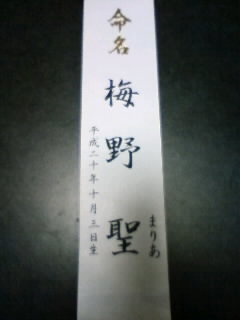 命名
梅野聖
まりあ
平成二十年十月三日生